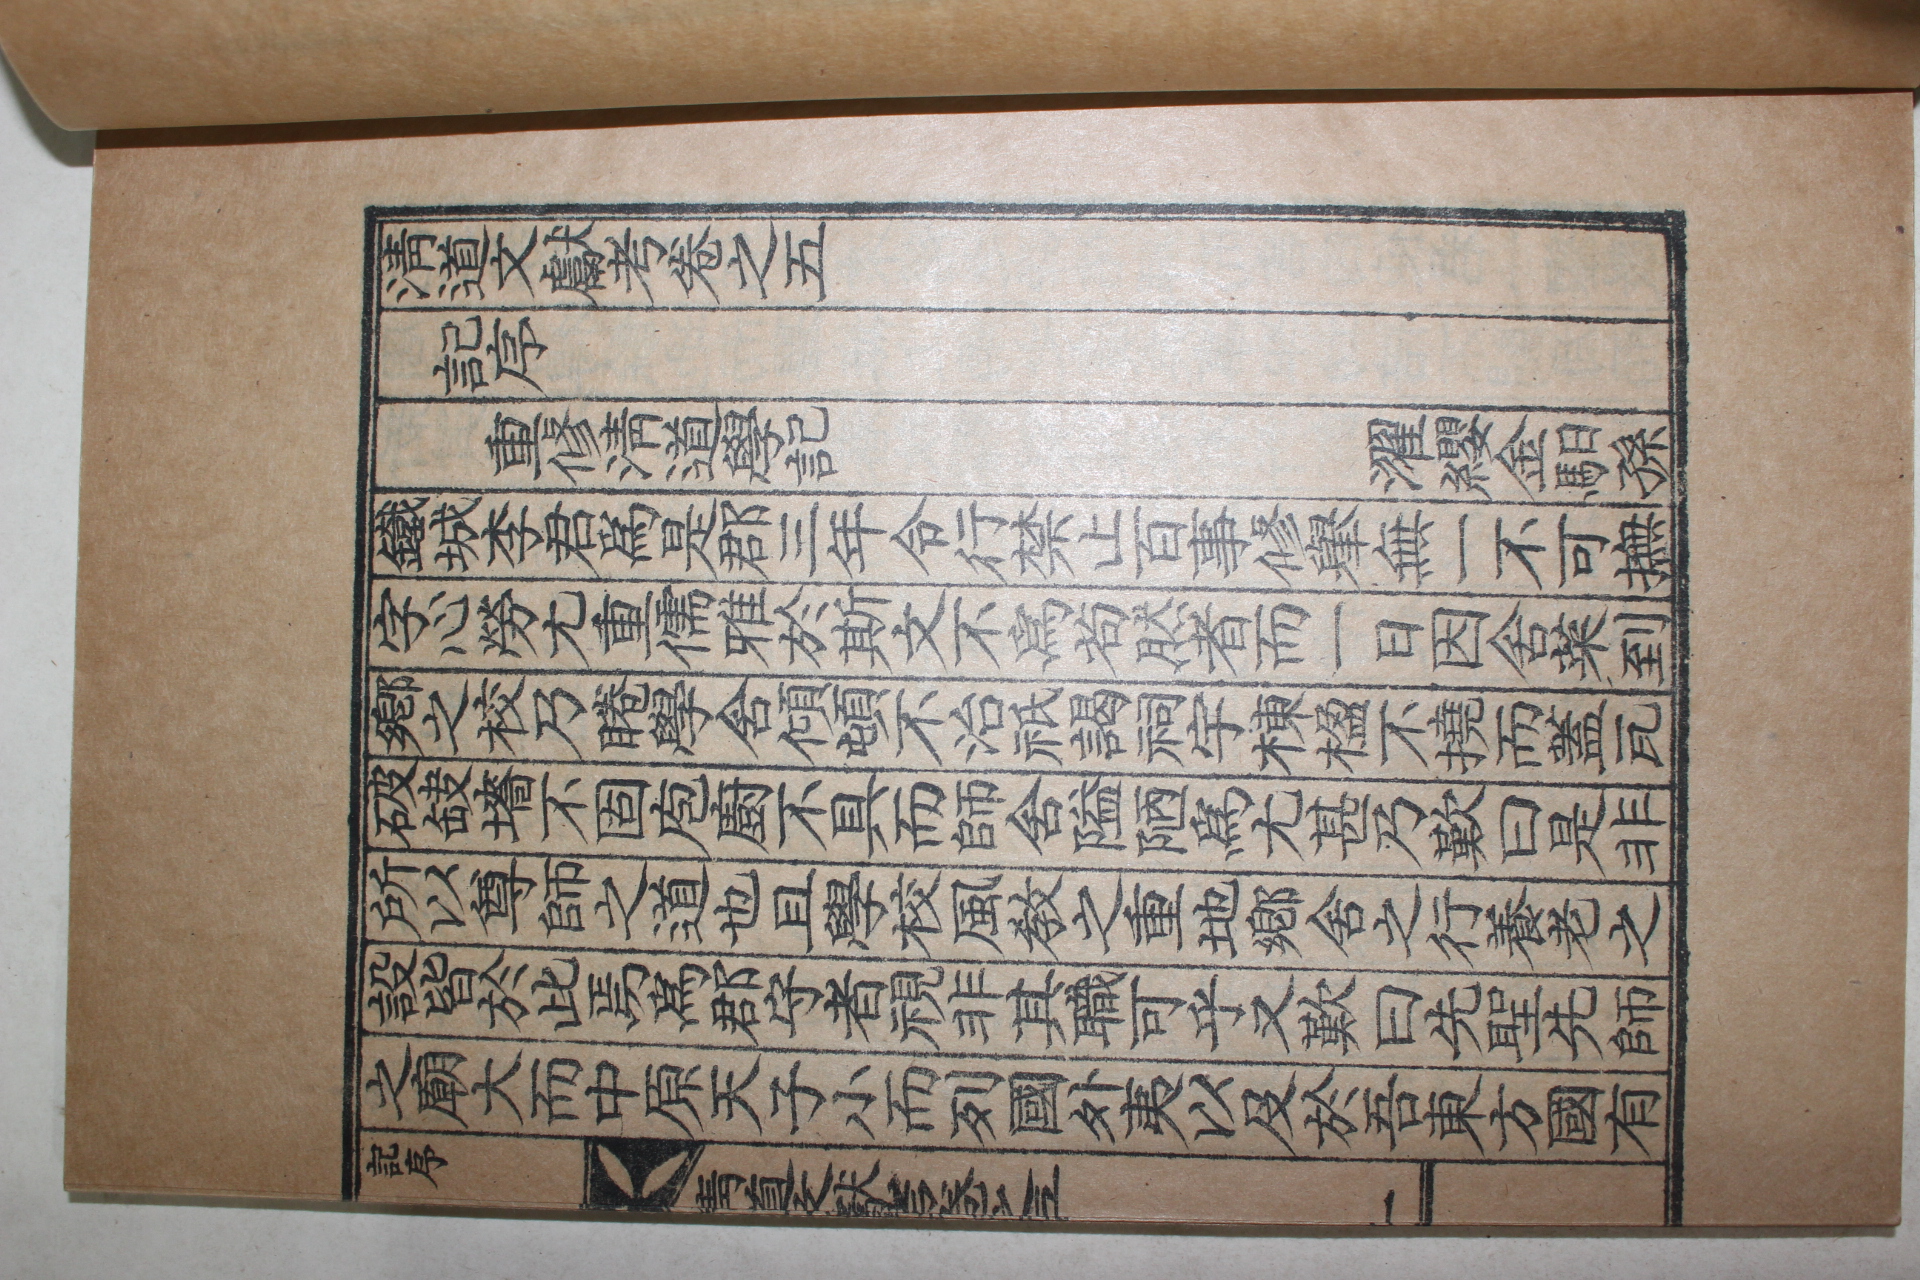 淸道文獻考卷之五
記序
重修淸道學記 濯纓金馹孫
鐵城李君爲是郡三年令行禁止百事修擧無一不可撫
字心勞尤重儒雅於斯文不爲恝然者而一日因舍菜到
鄕之校乃睠學舍傾頹不治祗謁祠宇棟楹不撓而蓋瓦
破缺墻不固庖廚不具而師舍隘陋爲尤甚乃歎曰是非
所以尊師之道也且學校風敎之重地鄕舍之行養老之
設皆於此焉爲郡守者視非其職可乎又歎曰先聖先師
之廟大而中原天子小而列國外夷以及於吾東方國有
記序
淸道文獻考卷之五 一